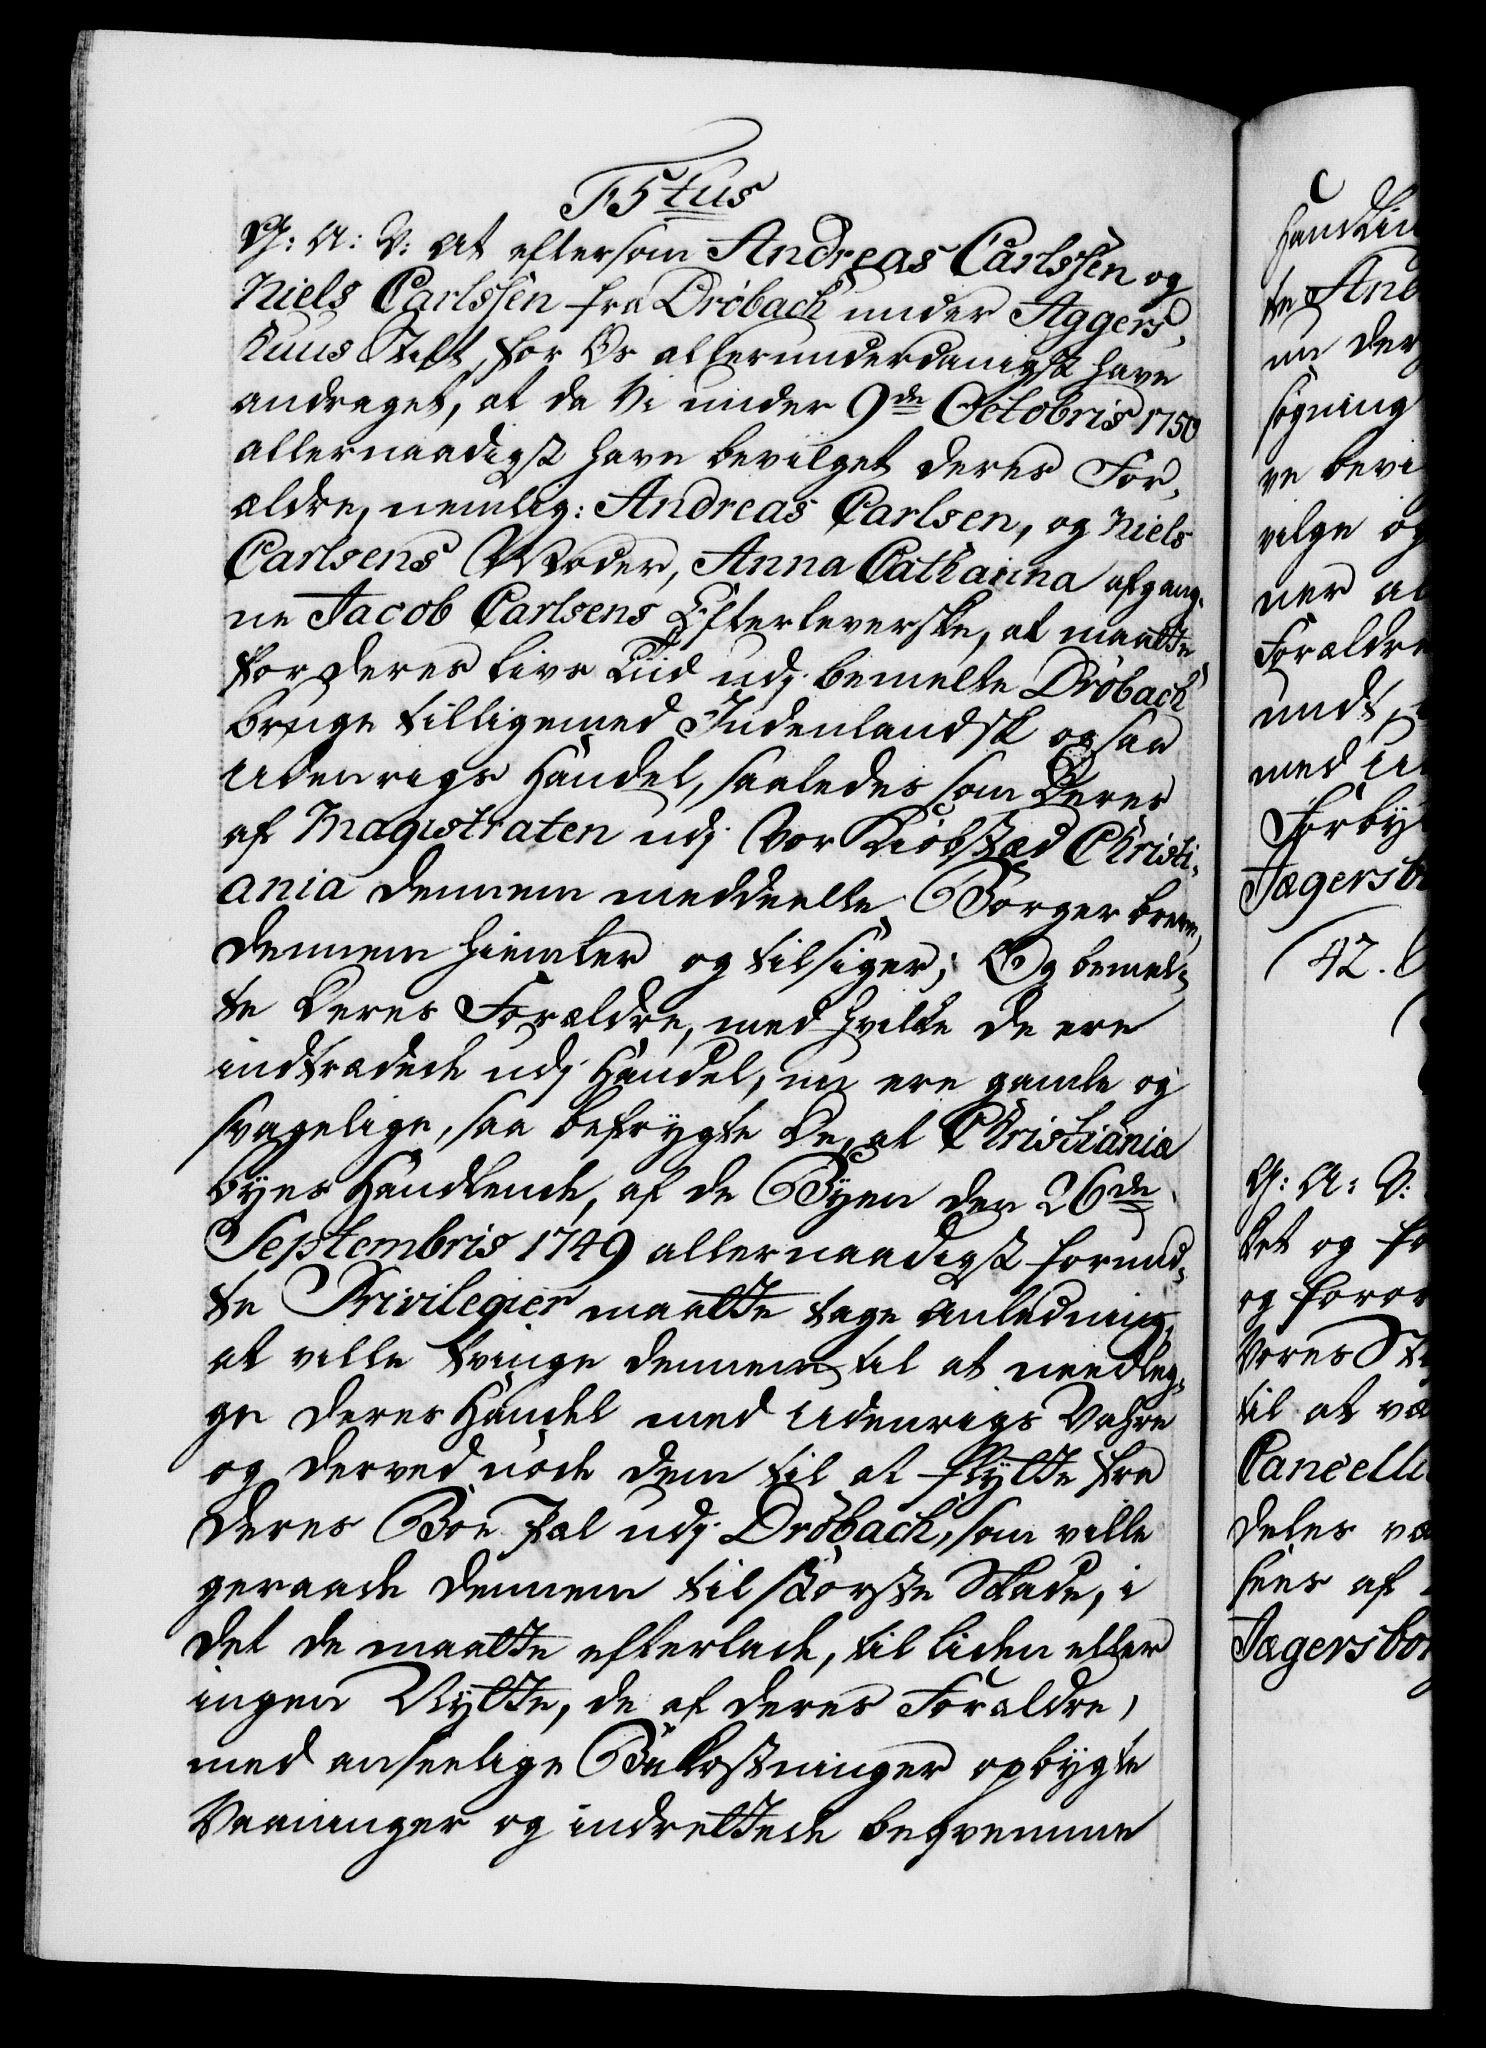 F5tus
G: A: V: at eftersom Andreas Carlssen og
Niels Carlssen fra Dröbach under Aggers-
huus Stift, for Os allerunderdanigst have
andraget, at da Vi under 9de Octobris 1750
allernaadigst have bevilget deres For-
ældre, nemlig: Andreas Carlsen, og Niels
Carlsens Moder, Anna Catharina afgang-
ne Jacob Carlsens Efterleverske, at maatte
for deres livs Tiid udj bemelte Dröbach
bruge tilligemed Indenlandsk ogsaa
Udenrigs Handel, saaledes som deres
af Magistraten udj Vor Kiöbstæd Christi-
ania dennem meddeelte Borger breve,
dennem hiemler og tilsiger; Og bemel-
te deres Forældre, med hvilke de ere
indtrædede udj Handel, nu ere gamle og
svagelige, saa befrygte de, at Christiania
byes Handlende, af de Byen den 26de
Septembris 1749 allernaadigst forund-
te Privilegier maatte tage anledning,
at ville tvinge dennem til at needleg-
ge deres Handel med Udenrigs Vahre
og derved nöde dem til at flytte fra
deres Boe Pæl udj Dröbach, som ville
geraade dennem til störste Skade, i
det de maatte efterlade, til liden eller
ingen Nytte, de af deres Forældre,
med anseelige Bekostninger opbygte
Vaaninger og indrettede beqvemme
handlin
te And
nu der
søgning
ve bevi
vilge og
ner al
Forældre
undt,
med U
Forby
Jægersb
(42.
G: A: V:
det og fo
og foror
Vores St
til at væ
Cancelli
deles væ
sees af
Jægersbor